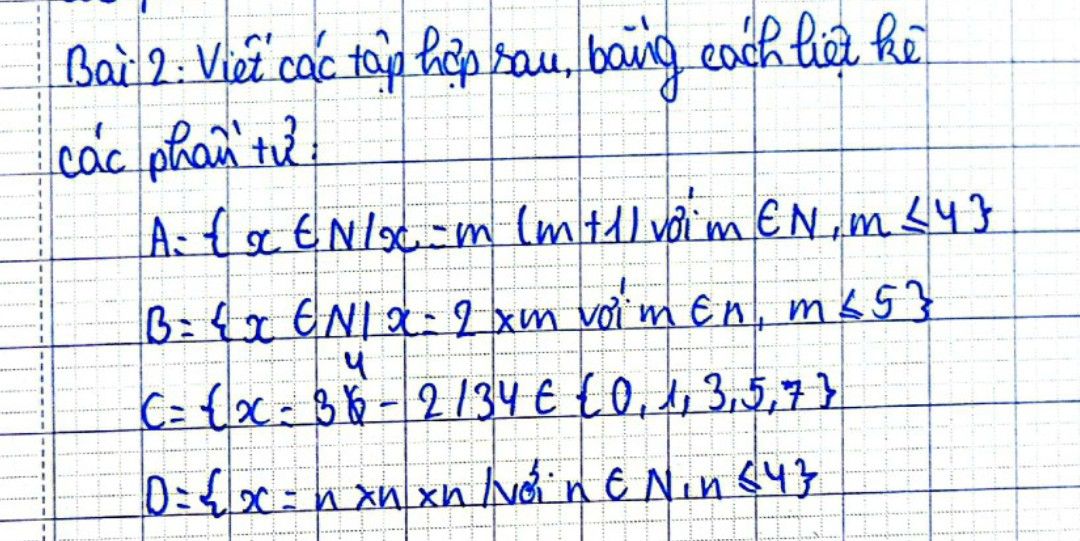 Bài 2: Viết các tập hợp sau, bằng cách liệt kê
các phần tử:
A = { x ∈ N / x = m (m+1) với m ∈ N, m ≤ 4 }
B = { x ∈ N / x = 2 × m với m ∈ n, m ≤ 5 }
C = { x = 34 - 2 / 34 ∈ { 0, 1, 3, 5, 7 }
D = { x = n × n × n / với n ∈ N, n ≤ 4 }